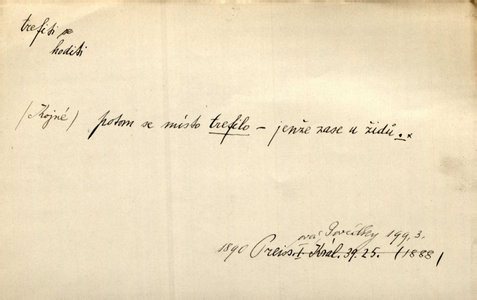 trefiti se
hoditi
(Kojné) potom se místo trefilo – jenže zase u židů. ×
Povídky 199, 3.
1890 Preiss. I Král. 39. 25. (1888)